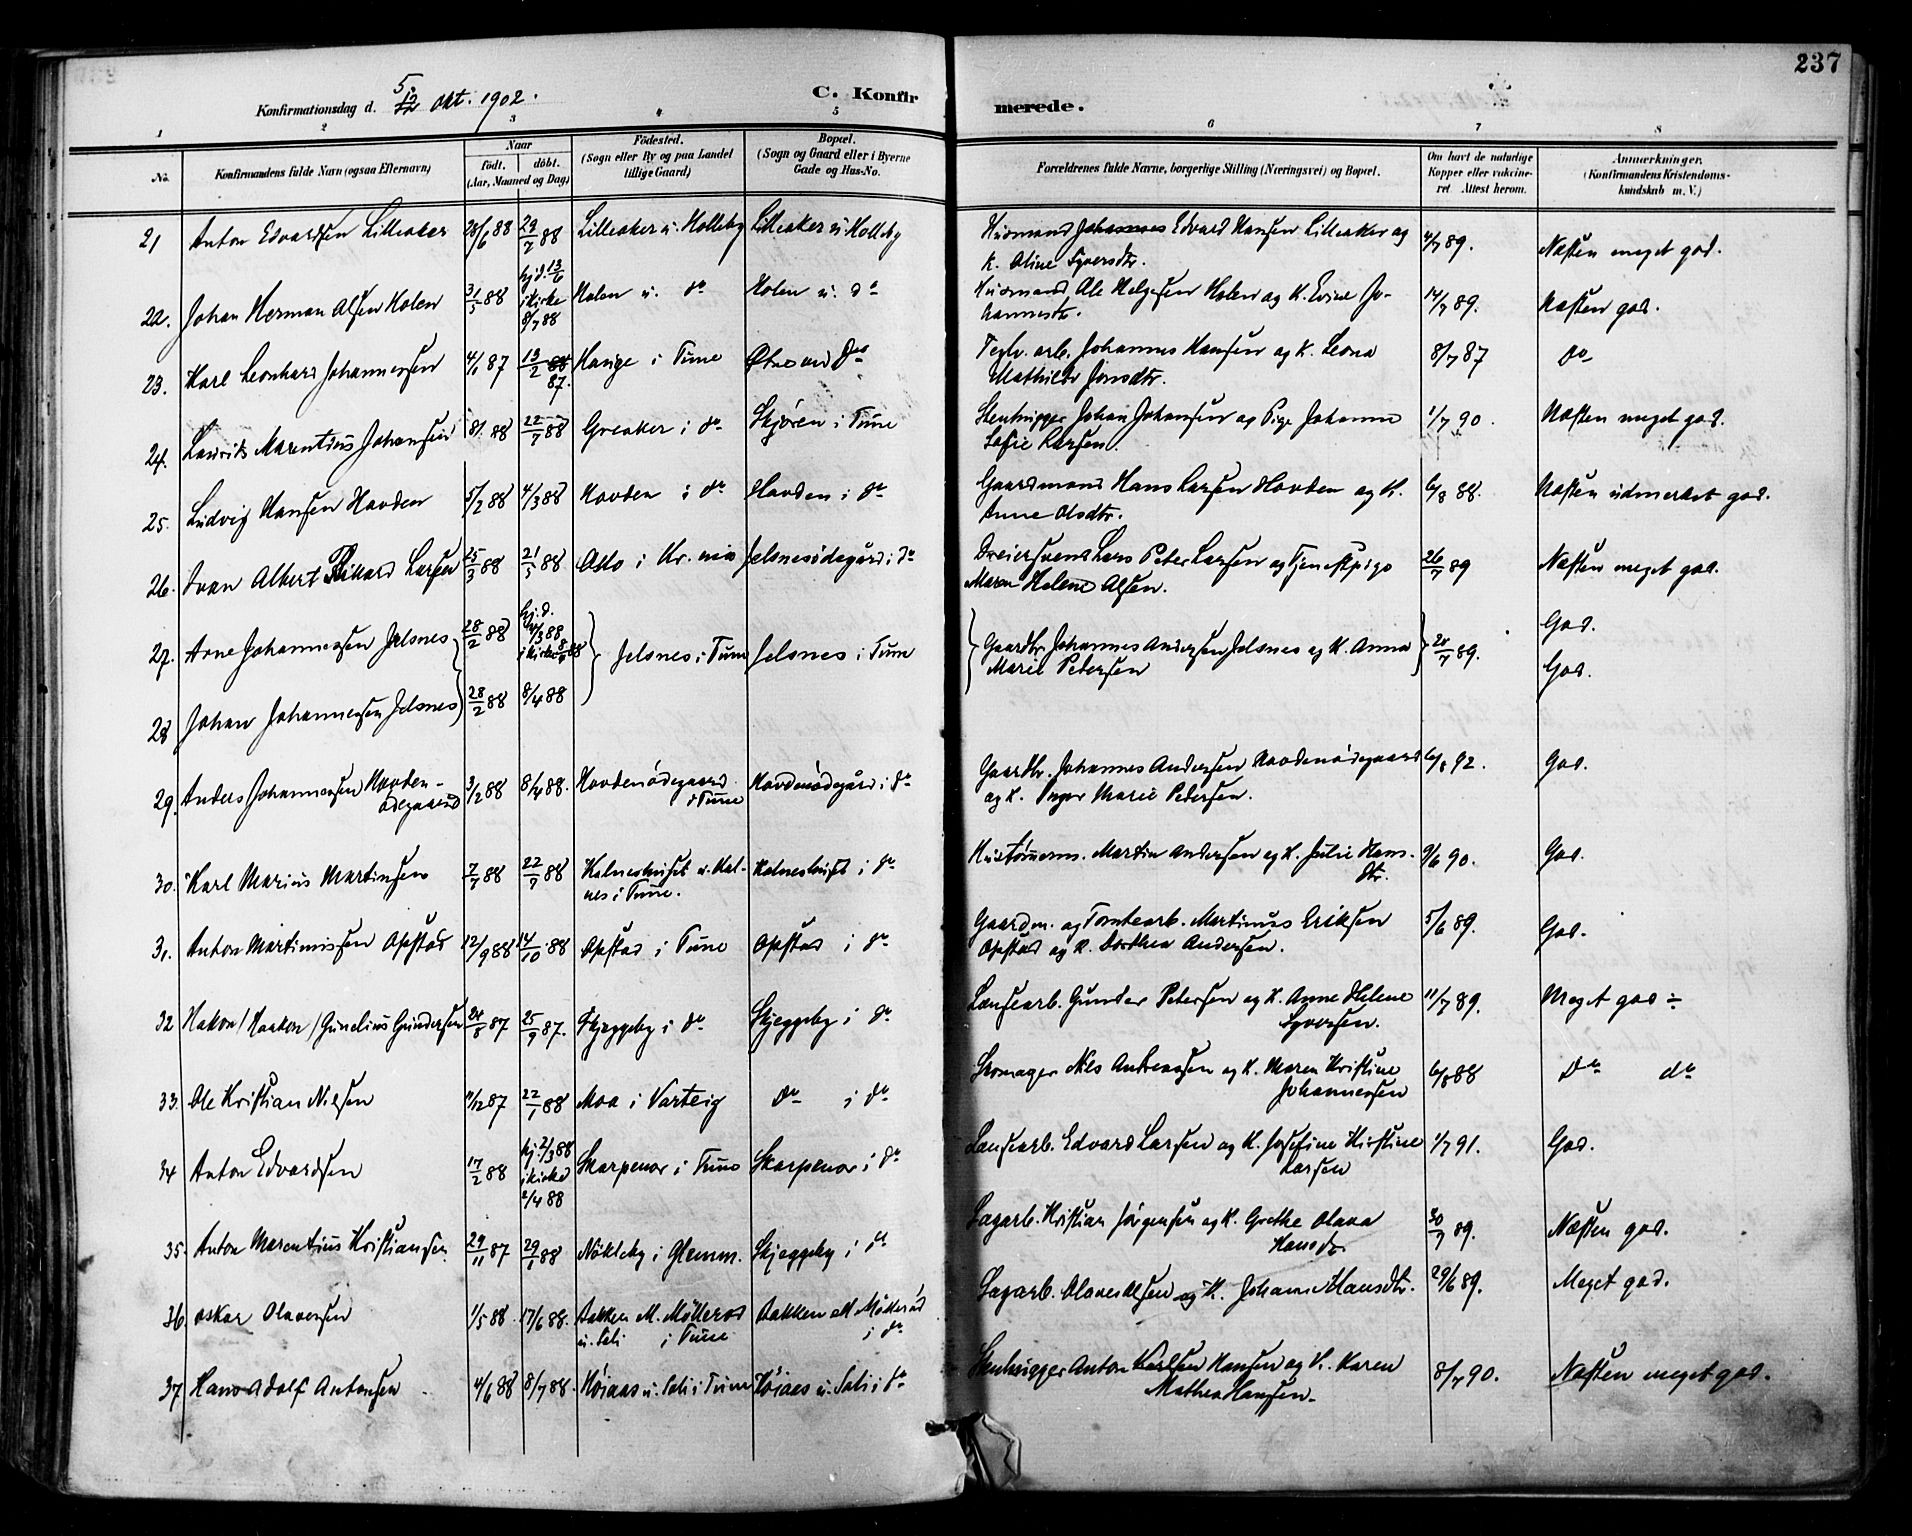 237
Konfirmationsdag d. 5/12 Okt. 1902.
C. Konfirmerede.
1 2 3 4 5 6 7 8
No. Konfirmandens fulde Navn (ogsaa Efternavn) Naar født. døbt. (Aar, Maaned og Dag) Fødested. (Sogn eller By og paa Landet tillige Gaard) Bopæl. (Sogn og Gaard eller i Byerne Gade og Hus-No. Forældrenes fulde Navne, borgerlige Stilling (Næringsvei) og Bopæl. Om havt de naturlige Kopper eller vakcineret. Attest herom. Anmærkninger. (Konfirmandens Kristendomskundskab m. V.)
21 Anton Edvardsen Lilleaker 28/6 88 29/7 88 Lilleaker u. Holleby Lilleaker u. Holleby Husmand Johannes Edvard Hansen Lilleaker og K. Oline Syversdtr. 4/7 89. Næsten meget god.
22. Johan Herman Olsen Holen 31/5 88 hj.d. 13/6 i kirke 8/7 88 Holen u. do Holen u. do Husmand Ole Helgesen Holen og K. Evine Johannesdtr. 14/7 89. Næsten god.
23. Karl Leonhard Johannessen 4/1 87 13/2 88 87. Hauge i Tune do Teglv. arb. Johannes Hansen og K. Leona Mathilde Jonsdtr. 8/7 87 do
24. Laurits Marentius Johansen 88 22/7 88 Greaker i do Skjøren i Tune Stenhugger Johan Johansen og Pige Johanne Sofie Larsen. 1/7 90. Næsten meget god.
25. Ludvig Hansen Hovden 5/2 88 4/3 88 Hovden i do Hovden i do Gaardmand Hans Larsen Hovden og K. Anne Olsdtr. 6/8 88. Næsten udmerket god.
26. Ivan Albert Rikard Larsen 25/3 88 21/5 88 Oslo i Kr.nia Jelsnesødegård i do Dreiersvend Lars Peter Larsen og Tjenestpige Maren Helene Olsen. 26/7 89 Næsten meget god.
27. Arne Johannessen Jelsnes 28/2 88 hj.d. /3 88 i kirke 8/4 88 Jelsnes i Tune Jelsnes i Tune Gaardbr. Johannes Andersen Jelsnes og K. Anna Marie Petersen 20/7 89. God.
28 Johan Johannessen Jelsnes 28/2 88 8/4 88 God.
29. Anders Johannessen Hovdenødegaard 3/2 88 8/4 88. Hovdenødegaard i Tune Hovdenødegård i do Gaardbr. Johannes Andersen Hovdenødegaard og K. Inger Marie Petersen. 6/8 92. God.
30. Karl Marius Martinsen 2/7 88 22/7 88 Kalneshuset u. Kalnes i Tune. Kalneshuset i do Hustømerm. Martin Andersen og K. Julie Hansdtr. 9/6 90. God.
31. Anton Martinissen Opstad 12/9 88 14/10 88 Opstad i Tune Opstad i do Gaardm. og Tomtearb. Martinus Eriksen Opstad og K. Dorthea Andersen. 5/6 89. God.
32 Hakon /Haakon/ Gunelius Gundersen 24/8 87 25/9 87. Skjeggeby i do Skjeggeby i do Lænsearb. Gunder Petersen og K. Anne Helene Syversen. 11/7 89. Meget god ÷
33. Ole Kristian Nilsen 11/12 87 22/1 88 Moa i Varteig do i do Skomager Nils Andreassen og K. Maren Kristine Johannessen 6/8 88 do do
34 Anton Edvardsen 17/2 88 hj. 2/3 88 i kirke 2/4 88 Skarpenor i Tune Skarpenor i do Lænsearb. Edvard Larsen og K. Josefine Kirstine Larsen 1/7 91. God.
35. Anton Marentius Kristiansen 29/11 87 29/1 88 Nøkleby i Glemm. Skjeggeby i do Sagarb. Kristian Jørgensen og K. Grethe Olava Hansdtr. 30/7 89. Næsten god.
36 Oskar Olavesen 1/5 88. 17/6 88. Bakken M. Møllerod u. Soli i Tune Bakken M. Møllerød i do Sagarb. Olaves Olsen og K. Johanne Hansdtr. 29/6 89. Meget god.
37. Hans Adolf Antonsen 4/6 88 8/7 88. Høiaas u. Soli i Tune Høiaas u. Soli i do Stenhugger Anton Karlsen Hansen og K. Karen Mathea Hansen. 8/7 90. Næsten meget god.